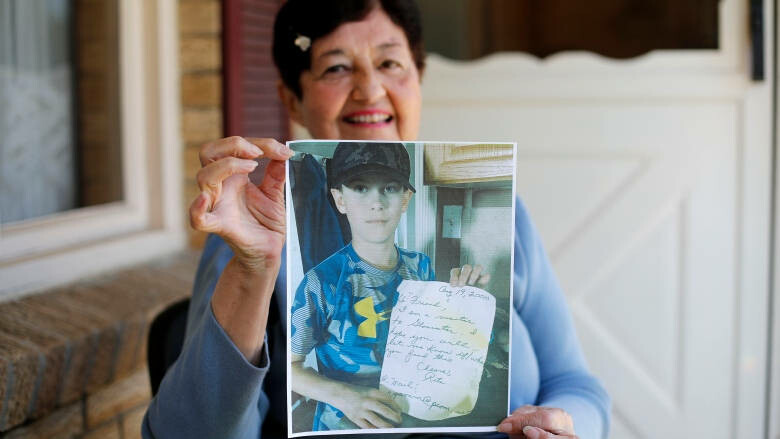 Aug 19, 2000
"Friend",
I am a visitor
to Gloucester. I
hope you will
let me know if/when
you find this
Cheers,
Rita
"mail":